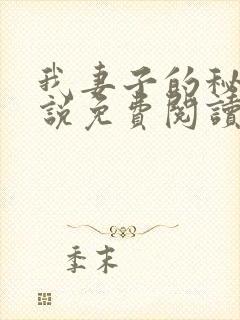 我妻子的秘
說免費閱讀
季末